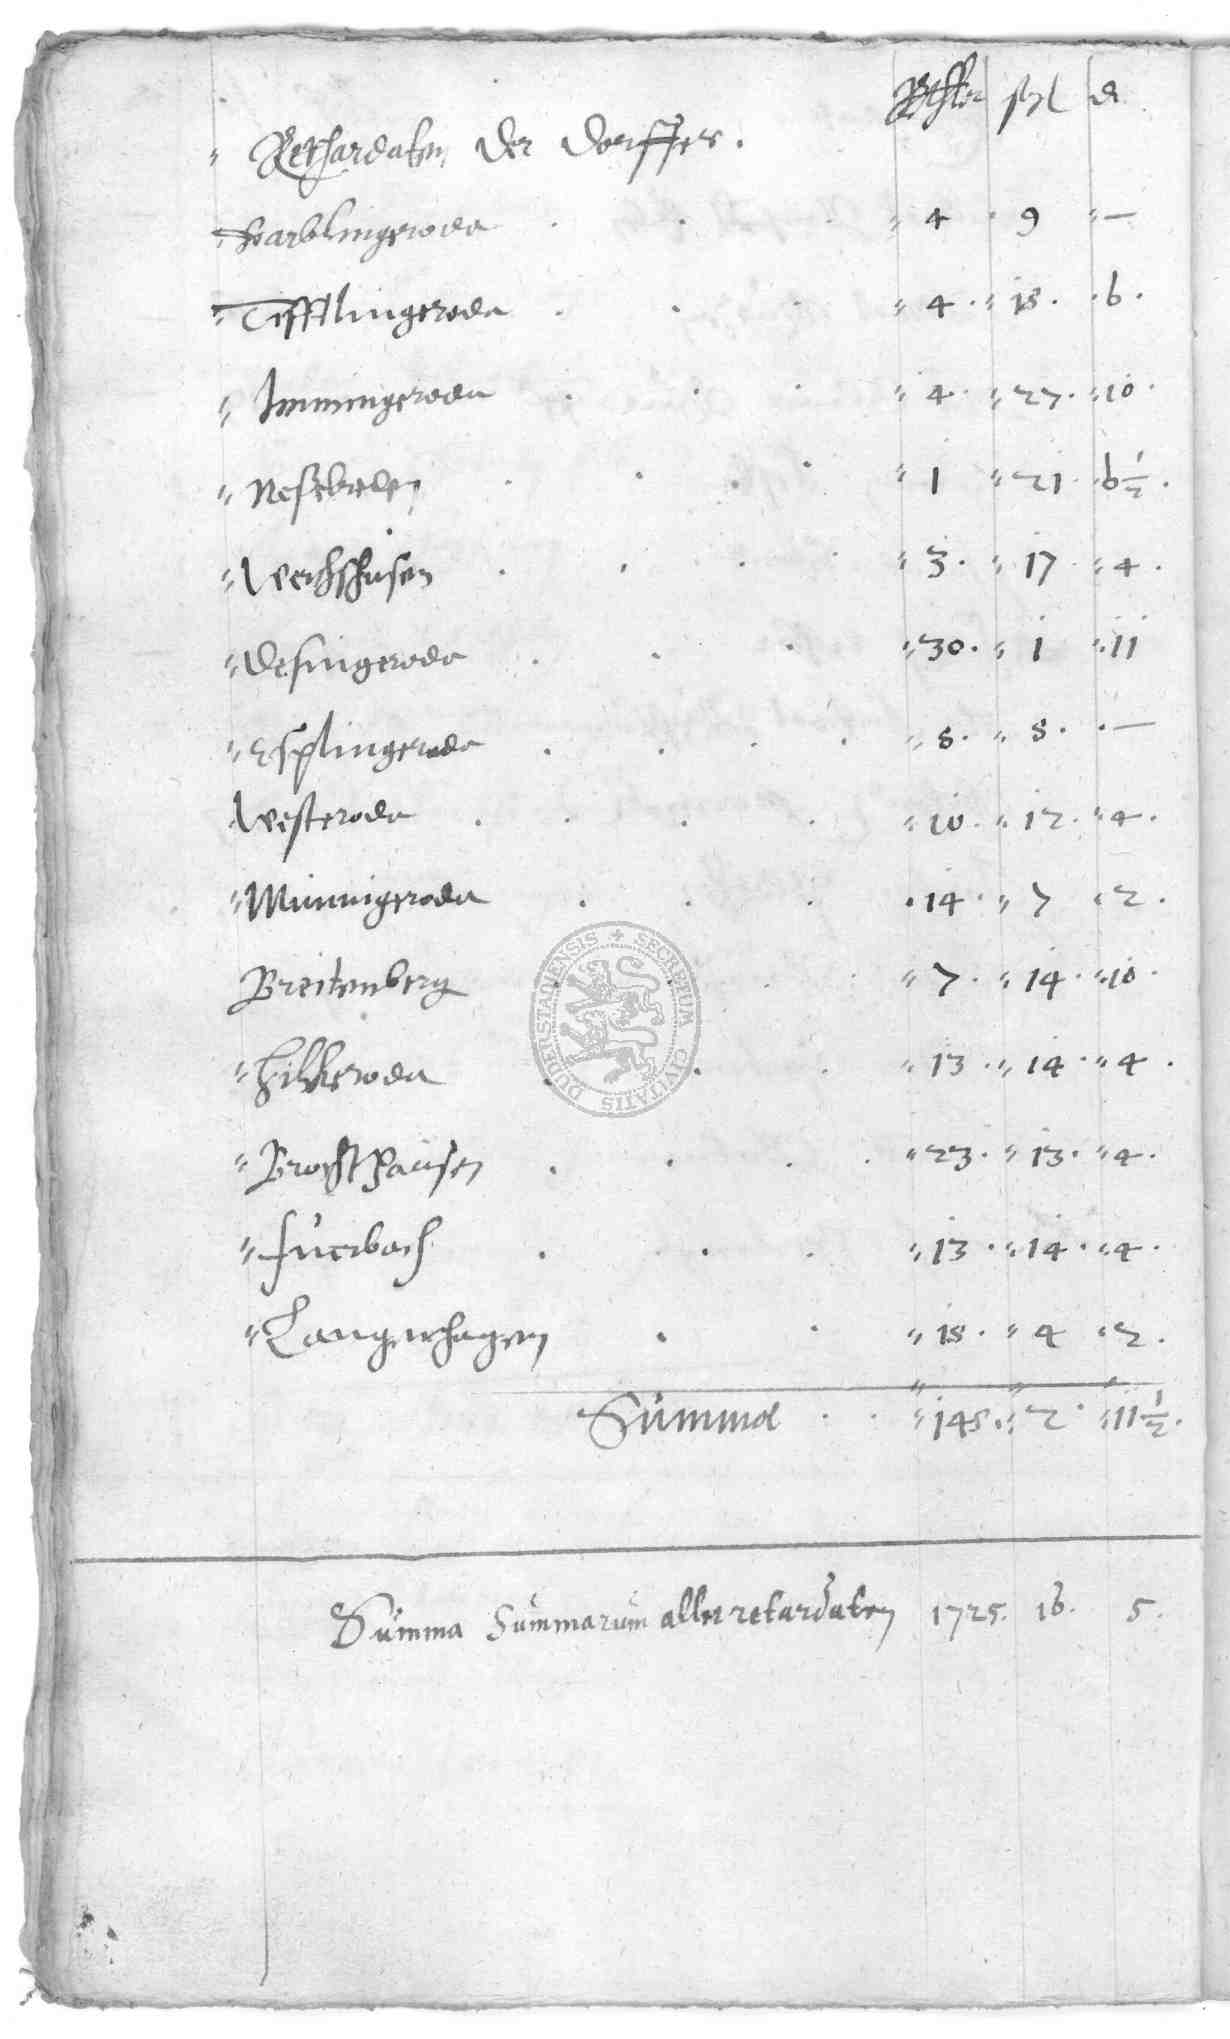 Rthler ßl d
Rethardaten der Dorffer.
Barblingeroda . . . 4 . 9 —
Tifftlingeroda . . . 4 . 18 . 6 .
Immingeroda . . . 4 . 27 . 10 .
Nesselreden . . . 1 21 . 6 1/2 .
Werkshusen . . . . 3 . 17 . 4 .
Desingeroda . . . 30 . 1 11
Esplingeroda . . . . 8 . 8 . —
Westeroda . . . . 10 . 12 . 4 .
Minnigeroda . . . 14 . 7 2 .
Breitenberg . . . 7 . 14 . 10 .
Hilkeroda . . . 13 . 14 . 4 .
Brochthausen . . . . 23 . 13 . 4 .
Fuerbach . . . 13 . 14 . 4 .
Langenhagen . . 18 . 4 2 .
Summa . . 148 . 2 . 11 1/2 .
Summa Summarum aller retardaten 1725 . 16 . 5 .
SECRETUM CIVITATIS DUDERSTADIENSIS